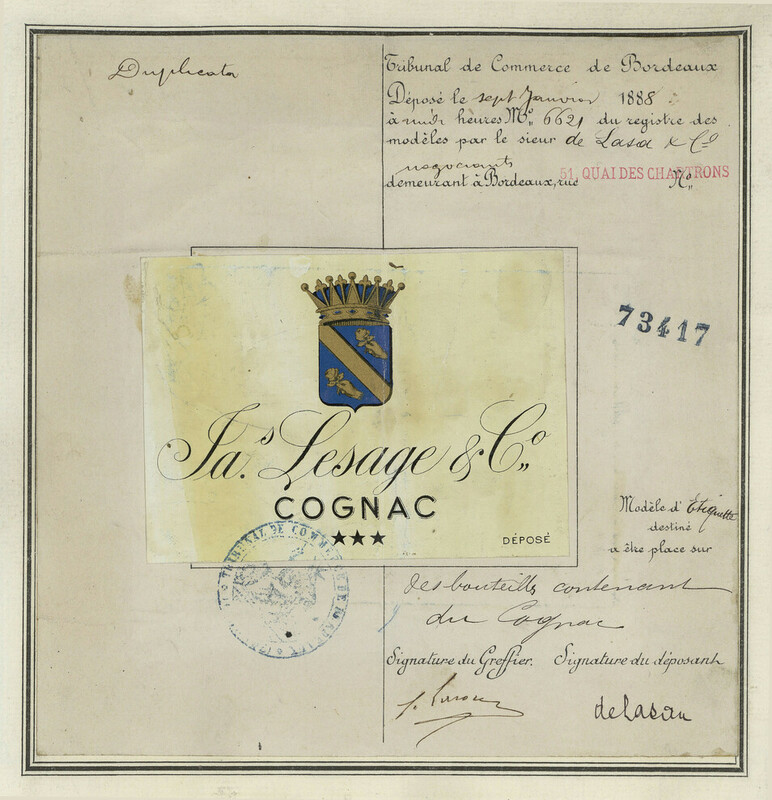 Duplicata
Tribunal de Commerce de Bordeaux
Déposé le sept Janvier 1888
à midi heures Nº 6621 du registre des
modèles par le sieur de Lasa & Cº
negociants
demeurant à Bordeaux, rue 51, QUAI DES CHARTRONS Nº
73417
Jas. Lesage & Cº
COGNAC
★★★
DÉPOSÉ
TRIBUNAL DE COMMERCE DE BORDEAUX
Modèle d'Etiquette
destiné
a être place sur
des bouteilles contenant
du Cognac
Signature du Greffier. Signature du déposant